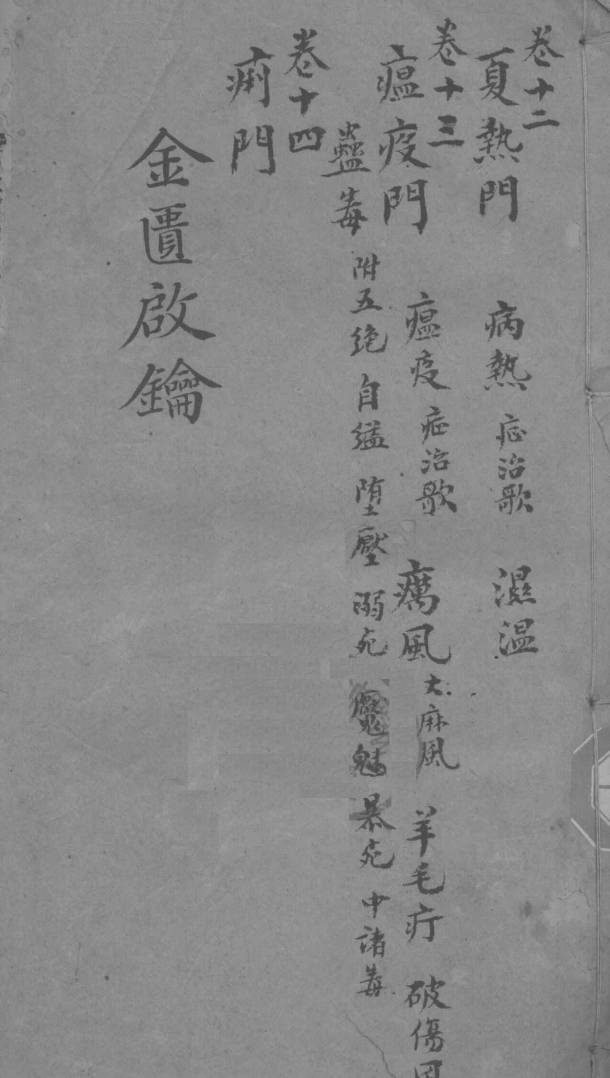 卷十二
夏熱門 病熱 症治歌 濕温
卷十三
瘟疫門 瘟疫 症治歌 癘風 大麻風 羊毛疔 破傷風
蠱毒 附五絶 自縊 墮壓 溺死 魘魅 暴死 中諸毒
卷十四
痢門
金匱啟鑰